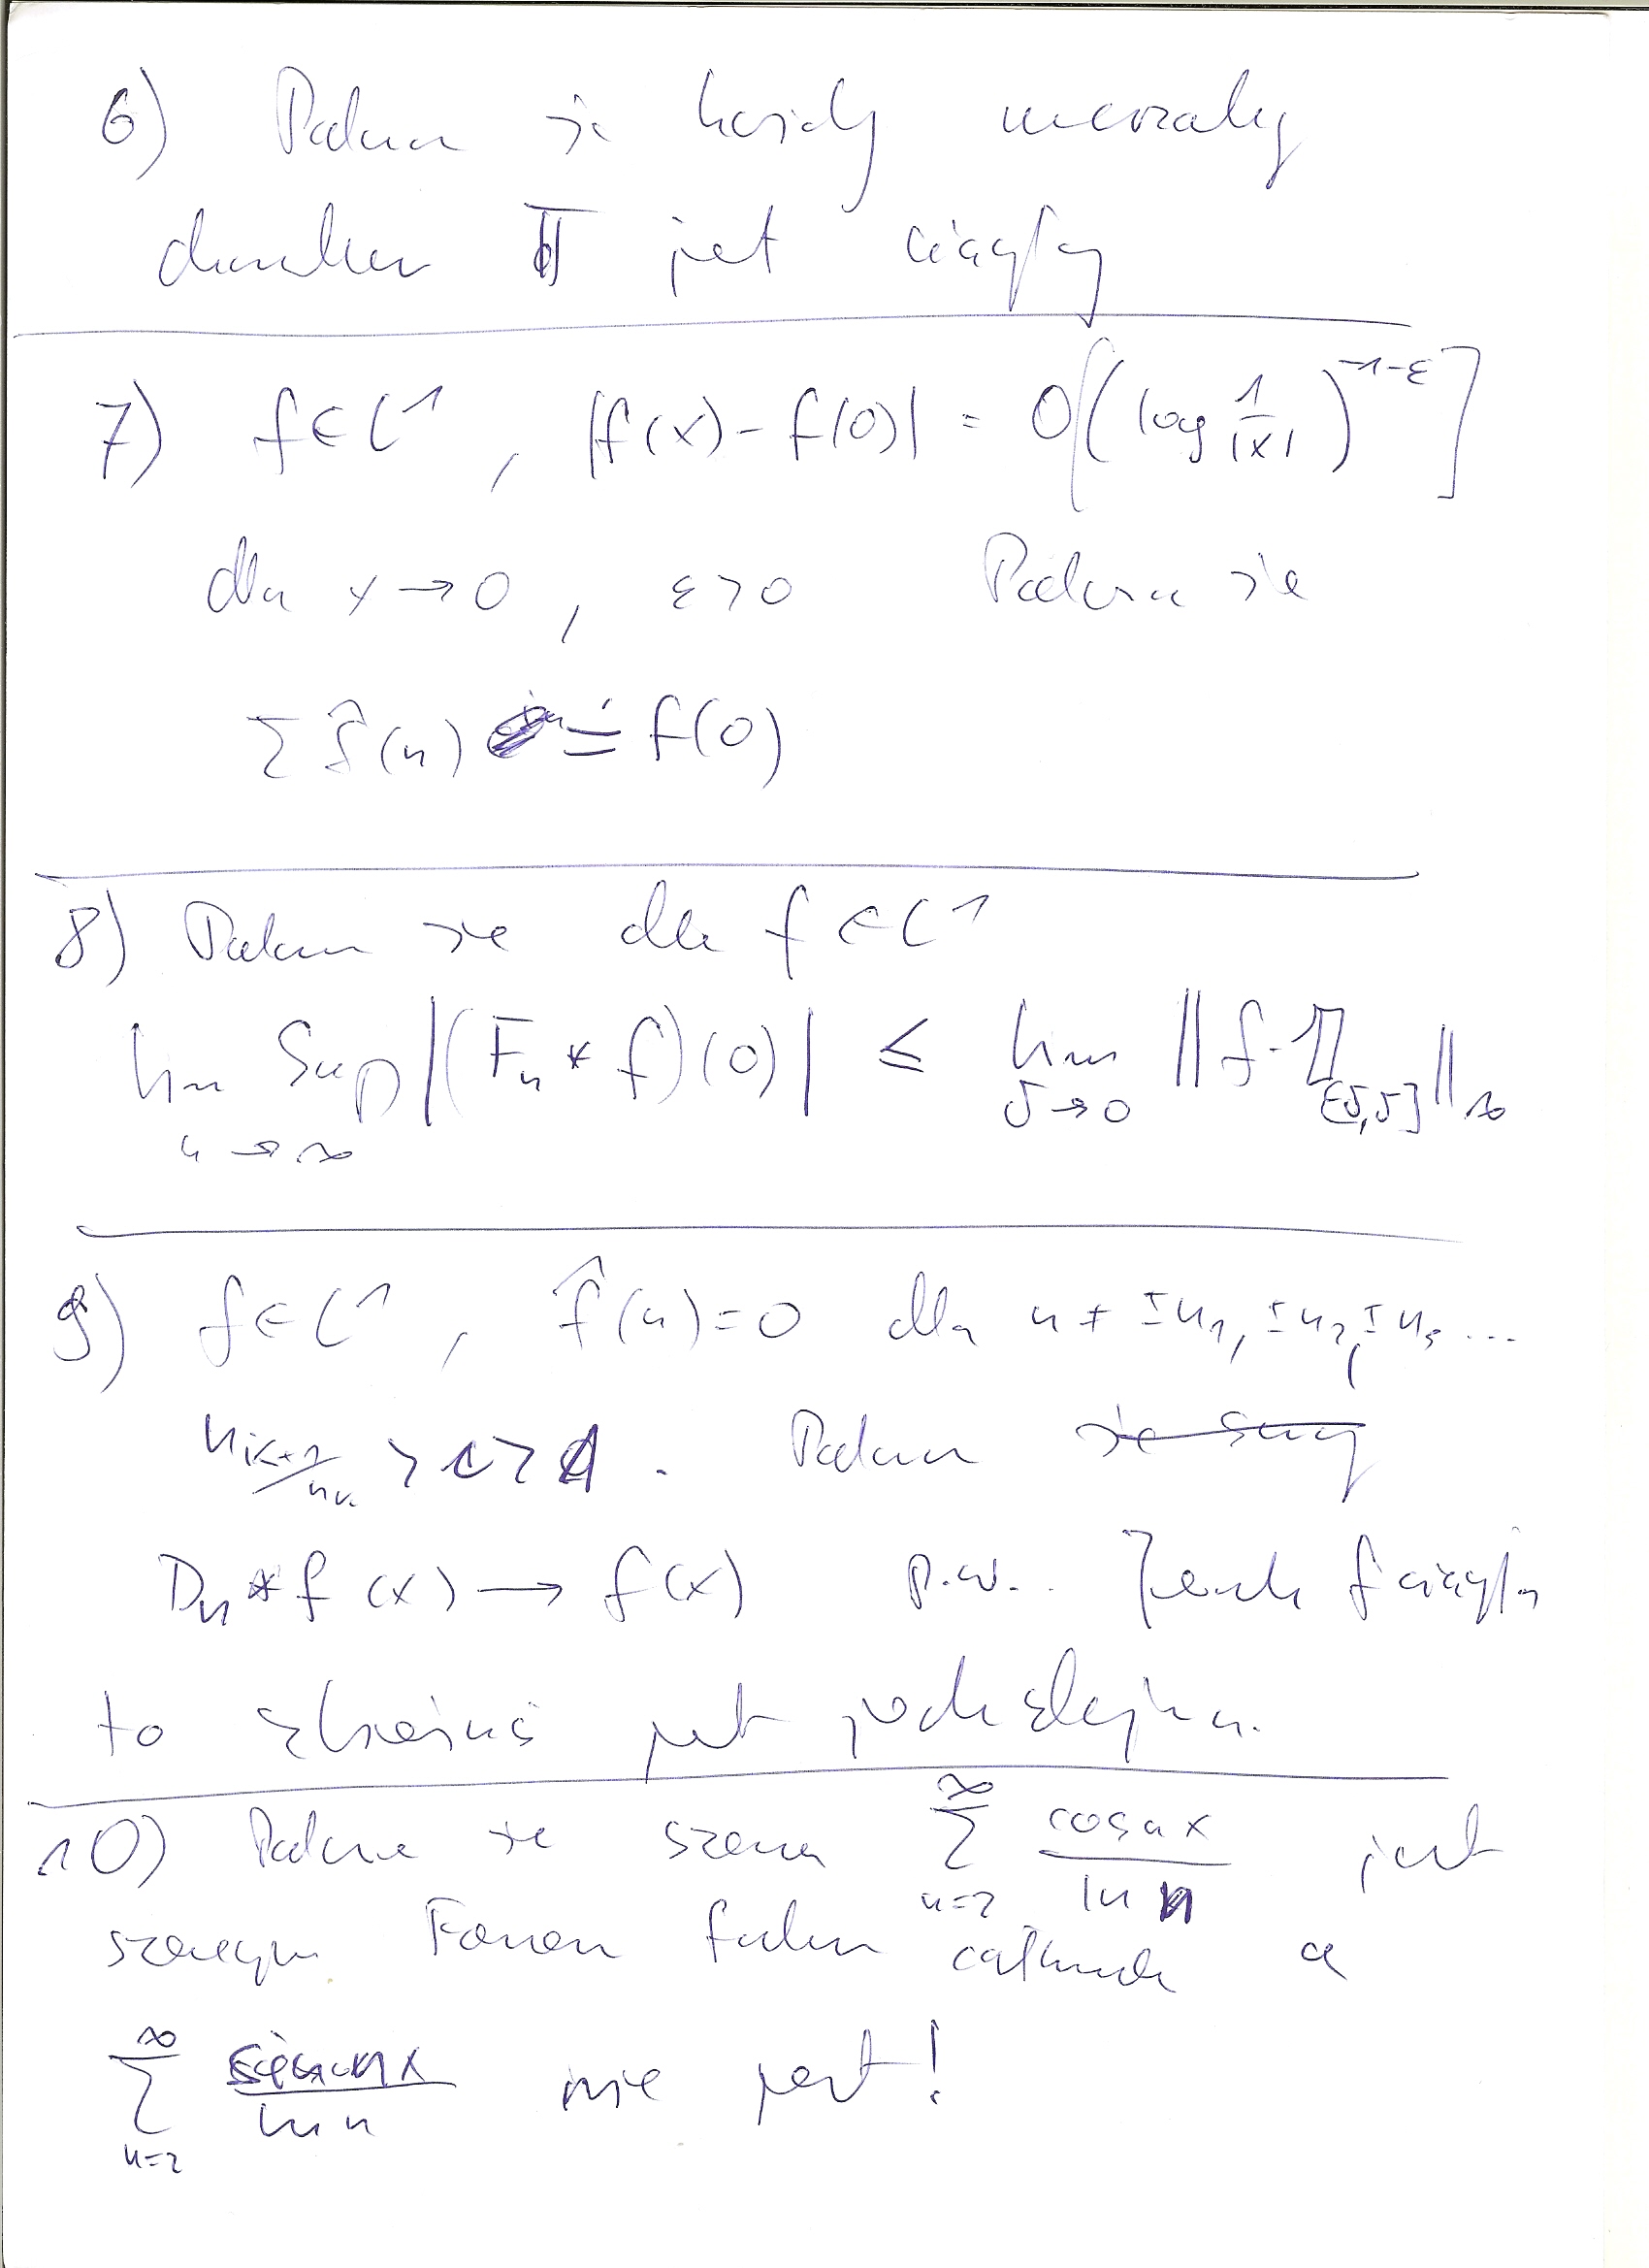 6) Pokaż że każdy mierzalny
charakter 𝕋 jest ciągły
7) f ∈ L¹, |f(x) - f(0)| = O[(log 1/|x|)^{-1-ε}]
dla x → 0, ε > 0 Pokaż że
Σ f̂(n) = f(0)
8) Pokaż że dla f ∈ L¹
lim sup_{n→∞} |(F_n * f)(0)| ≤ lim_{δ→0} ||f·𝟙_{[-δ,δ]}||_∞
9) f ∈ L¹, f̂(n) = 0 dla n ≠ ±n₁, ±n₂, ±n₃ ...
n_{k+1}/n_k > c > 1. Pokaż
D_n * f(x) → f(x) p.w.. Jeżeli f ciągła
to zbieżność jest jednostajna.
10) Pokaż że szereg Σ_{n=2}^∞ cos nx / ln n jest
szeregiem Fouriera funkcji całkowalnej a
Σ_{n=2}^∞ sin nx / ln n nie jest!